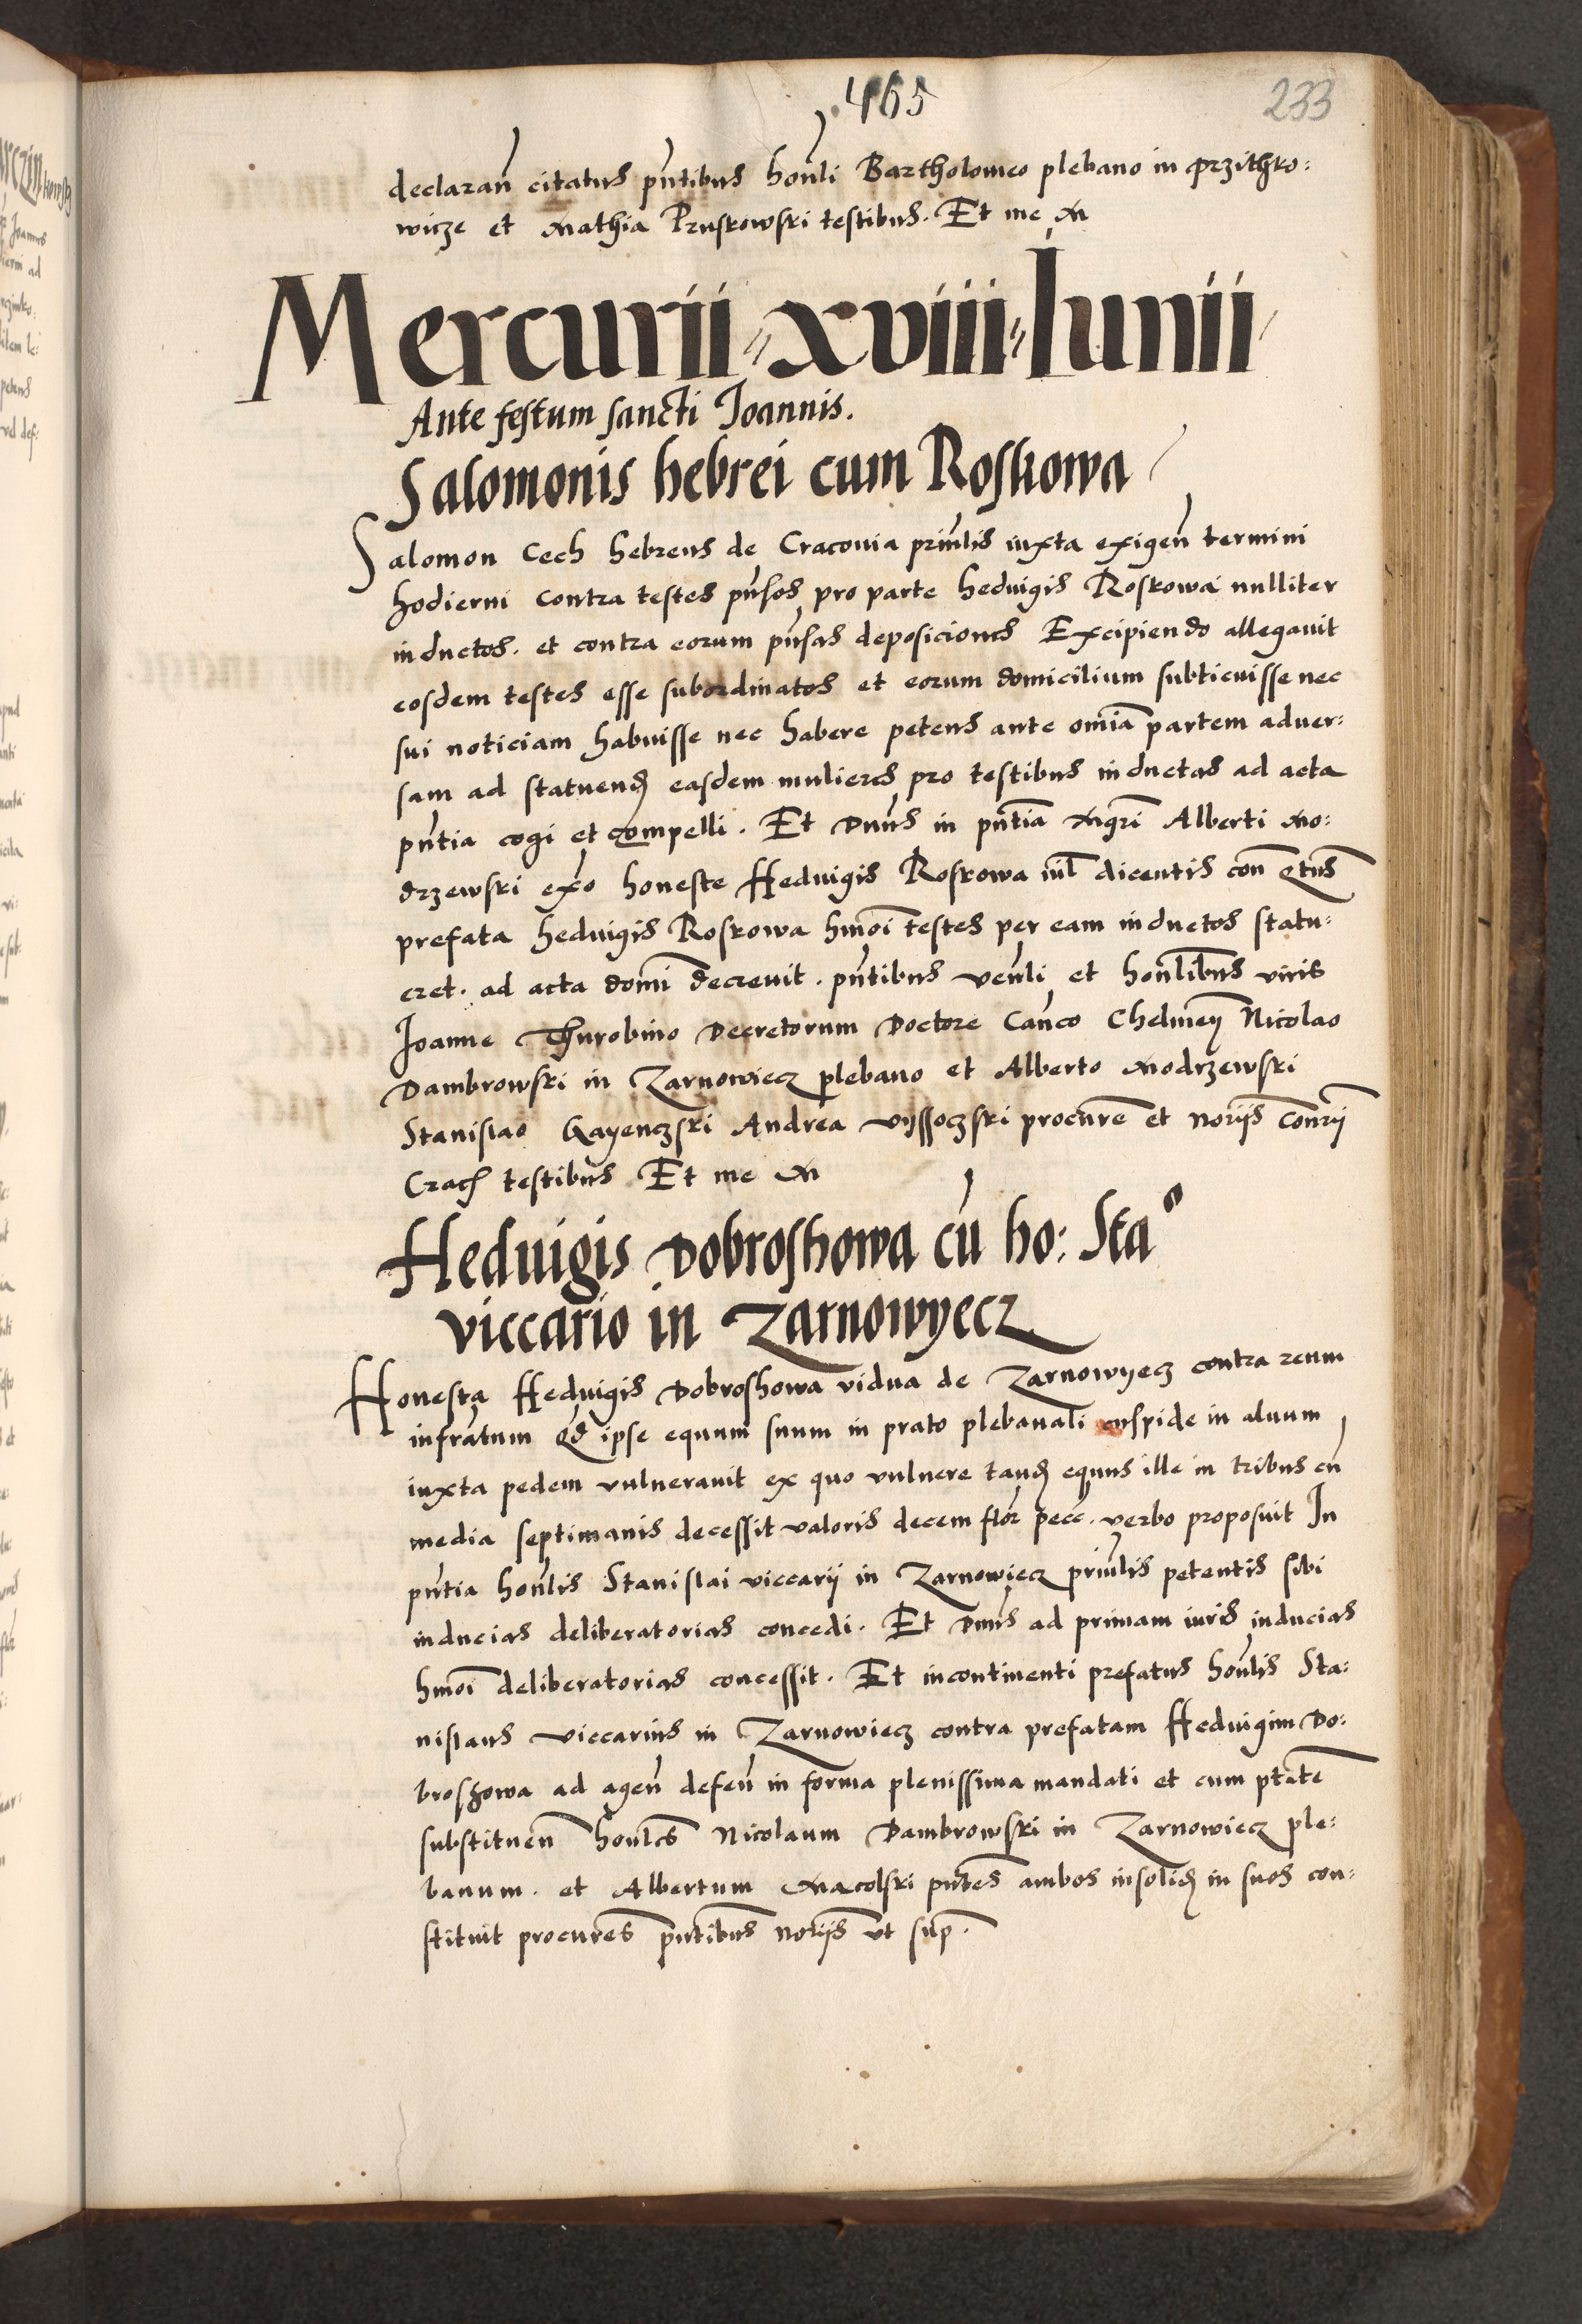 465
233
declaran̄ citatus pn̄tibus hon̄li Bartholomeo plebano in przithko:
wicze et Mathia Pruskowski testibus. Et me M
Mercurii xviii Iunii
Ante festum sancti Joannis.
Salomonis hebrei cum Roskowa
Salomon Cech hebreus de Cracovia prin̄lis iuxta exigen̄ termini
hodierni contra testes pn̄sos pro parte hedvigis Roskowa nulliter
inductos. et contra eorum pn̄sas deposiciones Excipiendo allegavit
eosdem testes esse subordinatos et eorum domicilium subticuisse nec
sui noticiam habuisse nec habere petens ante om̄ia partem adver:
sam ad statuend easdem mulieres pro testibus inductas ad acta
pn̄tia cogi et compelli. Et Dnūs in pn̄tia Mgrī Alberti Mo:
drzewski exo honeste Hedvigis Roskowa nil̄ dicentis con̄ q̄tus
prefata hedvigis Roskowa hmōi testes per eam inductos statu:
eret. ad acta domī decrevit. pn̄tibus ven̄li et hon̄libus viris
Joanne Thurobino Decretorum Doctore Can̄co Chelmen̄ Nicolao
Dambrowski in Zarnowiecz plebano et Alberto Modrzewski
Stanislao Gayenczski Andrea Vyssoczski procurē et noriis̄ Con̄rii
Crac testibus Et me M
Hedvigis Dobroshowa cū ho: Sta°
viccario in Zarnowyecz
Honesta Hedvigis Dobroshowa vidua de Zarnowyecz contra reum
infrātum qd ipse equum suum in prato plebanali cuspide in alvum
iuxta pedem vulneravit ex quo vulnere tand equus ille in tribus cū
media septimanis decessit valoris decem flor̄ pecc̄. verbo proposuit In
pn̄tia hon̄lis Stanislai viccarii in Zarnowiecz prin̄lis petentis sibi
inducias deliberatorias concedi. Et Dnūs ad primam iuris inducias
hmōi deliberatorias concessit. Et incontinenti prefatus hon̄lis Sta:
nislaus Viccarius in Zarnowiecz contra prefatam Hedvigim Do:
broshowa ad agen̄ defen̄ in forma plenissima mandati et cum ptatē
substituen̄ hon̄les Nicolaum Dambrowski in Zarnowiecz ple:
banum. et Albertum Macolski pn̄tes ambos insolid in suos con:
stituit procures̄ pn̄tibus noriis̄ ut sup̄.